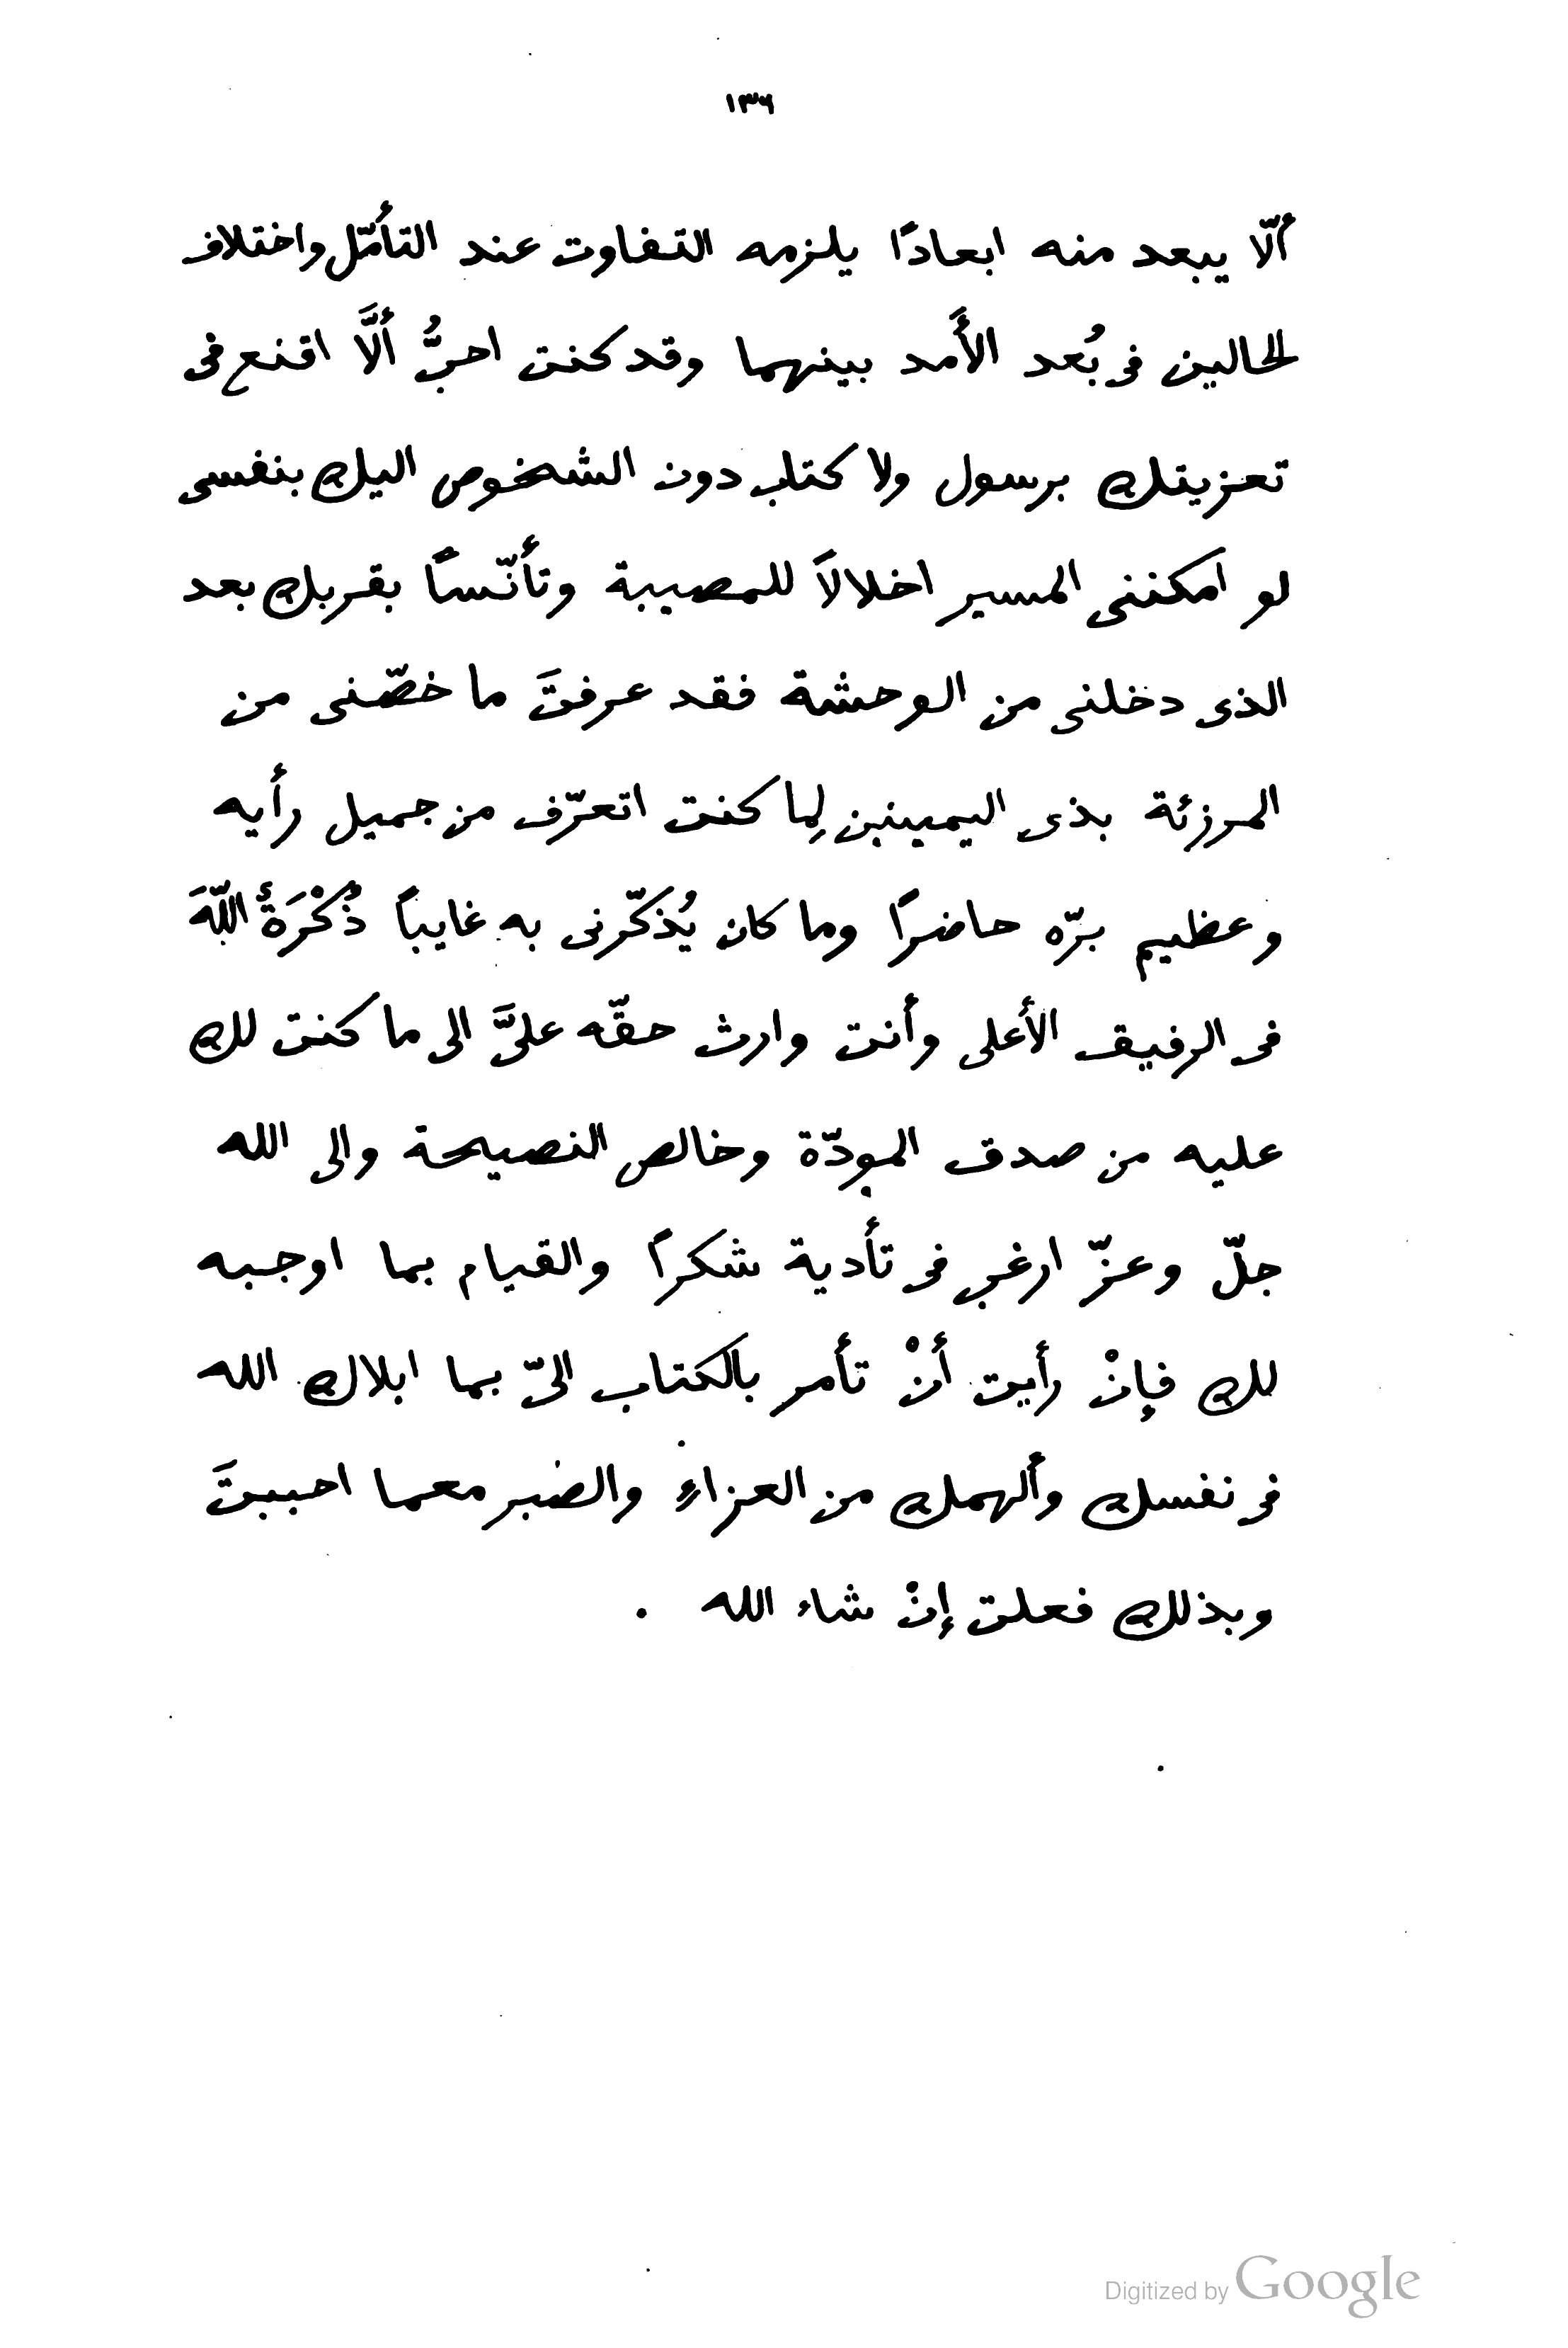 ١٣٦
ألّا يبعد منه ابعادًا يلزمه التفاوت عند التأمّل واختلاف
لحالين فى بُعد الأَمد بينهما وقد كنت احبُّ ألَّا اقنع فى
تعزيتك برسول ولا كتاب دون الشخوص اليك بنفسى
لو امكننى المسير اخلالاً للمصيبة وتأنّسًا بقربك بعد
الذى دخلنى من الوحشة فقد عرفتَ ما خصّنى من
المرزئة بذى اليمينين لِما كنت اتعرّف من جميل رأيه
وعظيم برّه حاضرًا وما كان يُذكّرنى به غايبًا ذُكْرَةُ اللّهَ
فى الرفيق الأعلى وأنت وارث حقّه علىَّ الى ما كنت لك
عليه من صدق المودّة وخالص النصيحة والى الله
جلّ وعزّ ارغب فى تأدية شكرًا والقيام بما اوجبه
لك فإنْ رأيت أنْ تأمر بالكتاب الىّ بما ابلاك الله
فى نفسك وألهمك من العزاءِ والضبر معما احببتَ
وبذلك فعلت إنْ شاء الله .
Digitized by Google